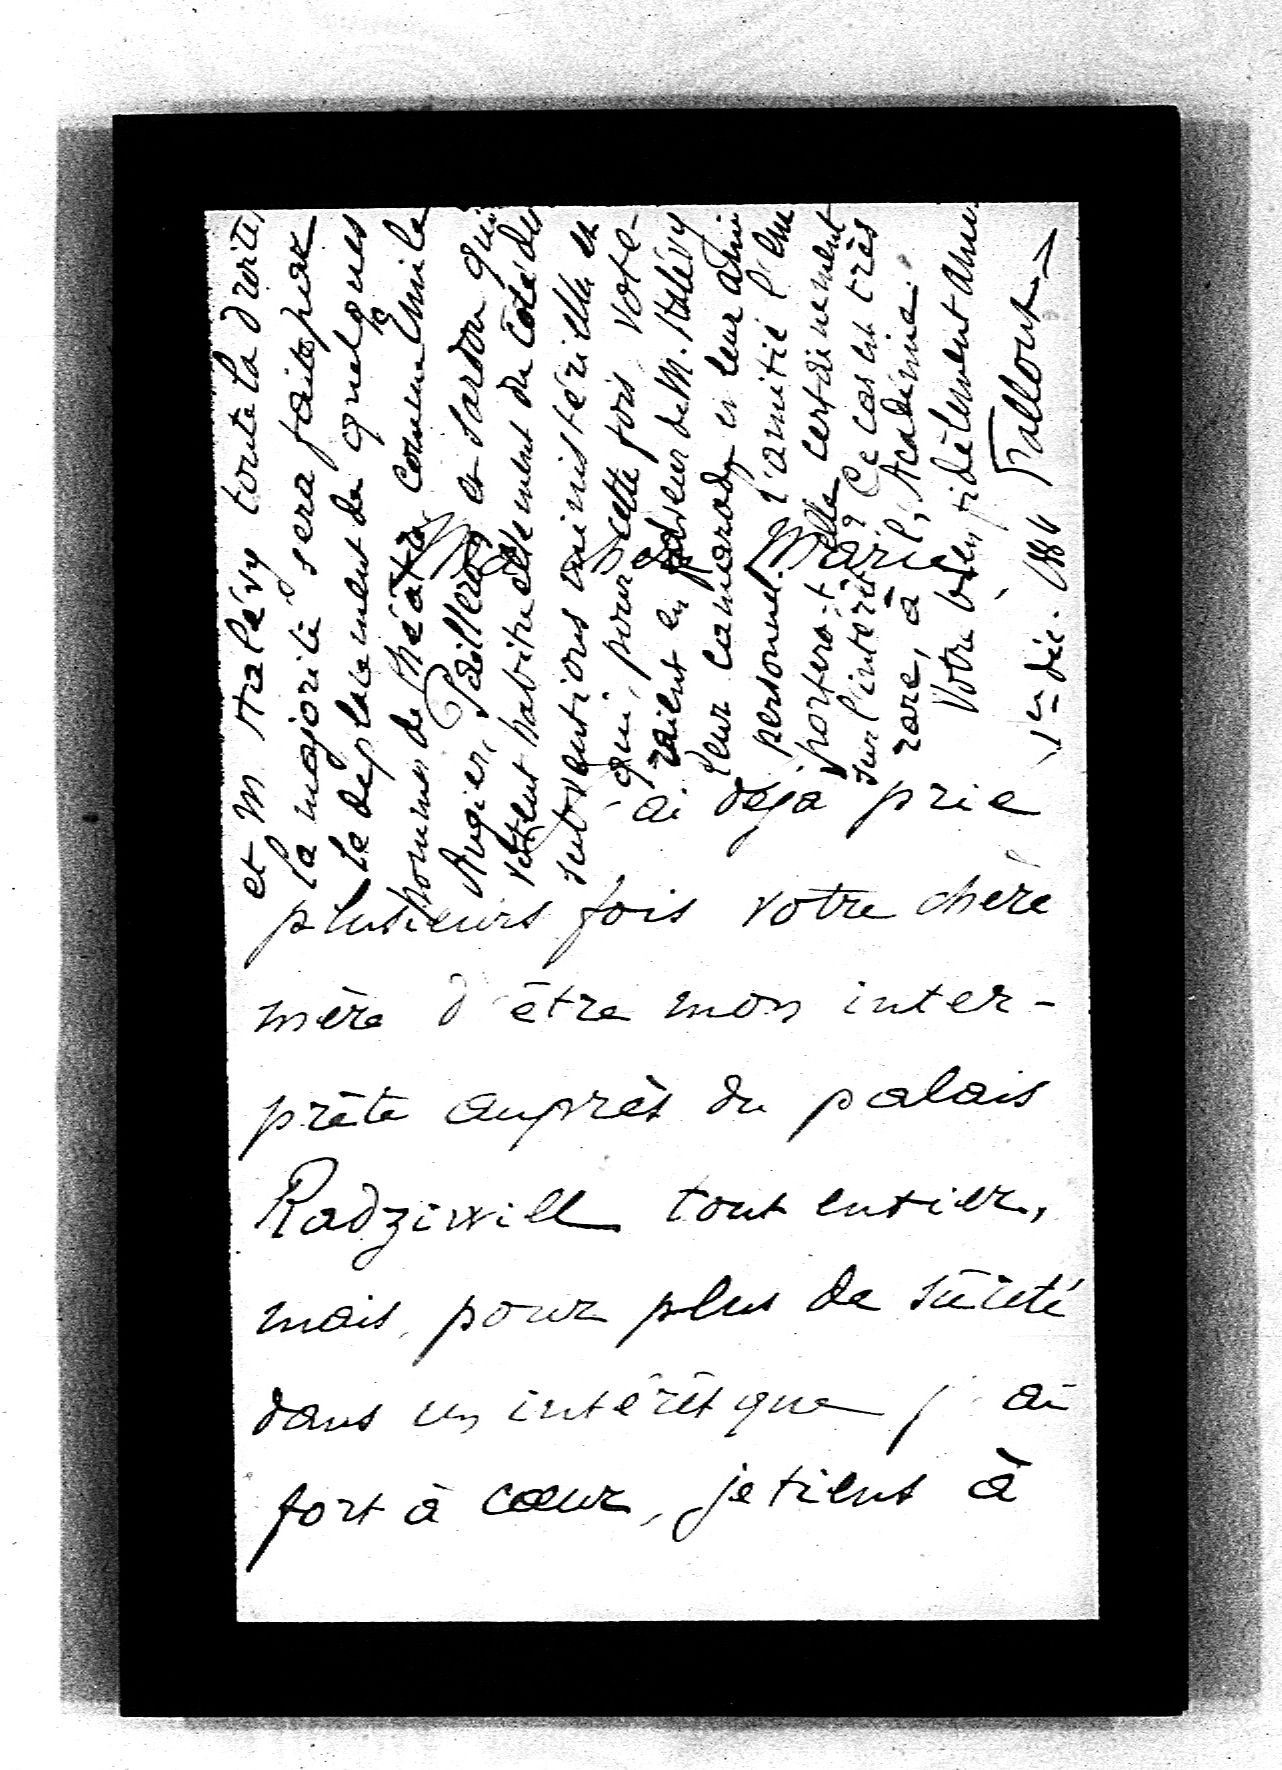 Ma chère Marie
j'ai déjà prié
plusieurs fois votre chère
mère d'être mon inter-
prète auprès du palais
Radziwill tout entier,
mais, pour plus de sûreté
dans un intérêt que j'ai
fort à cœur, je tiens à
et M. Halévy toute la droite,
la majorité sera faite par
le déplacement de quelques
hommes de théâtre comme Emile
Augier, Pailleron et Sardou qui
votent habituellement du côté des
subventions ministérielles et
qui, pour cette fois, vote-
raient en faveur de M. Halévy
leur camarade et leur ami
personnel. L'amitié l'em
portera-t-elle certainement
sur l'intérêt? Ce cas est très
rare, à l'Académie.
Votre bien fidèlement
Falloux
1er déc. 1884